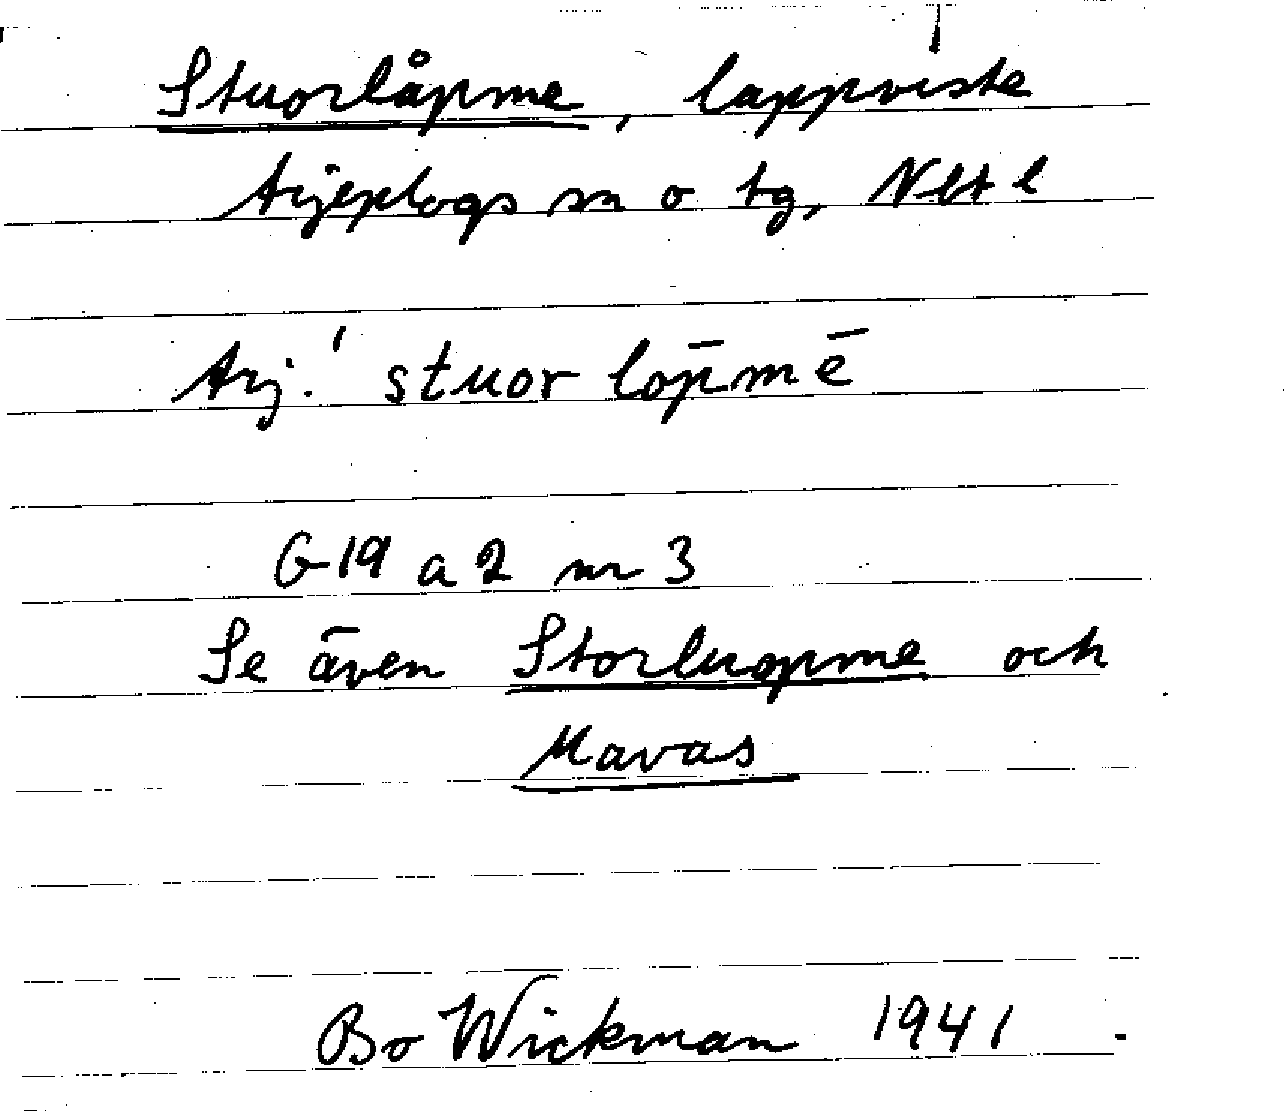 Stuorlåpme, lappviste
Arjeplogs sn o tg, Nbt l
Arj. ˈstuor lōpmē
G 19 a 2 nr 3
Se även Storluopme och
Mavas
Bo Wickman 1941